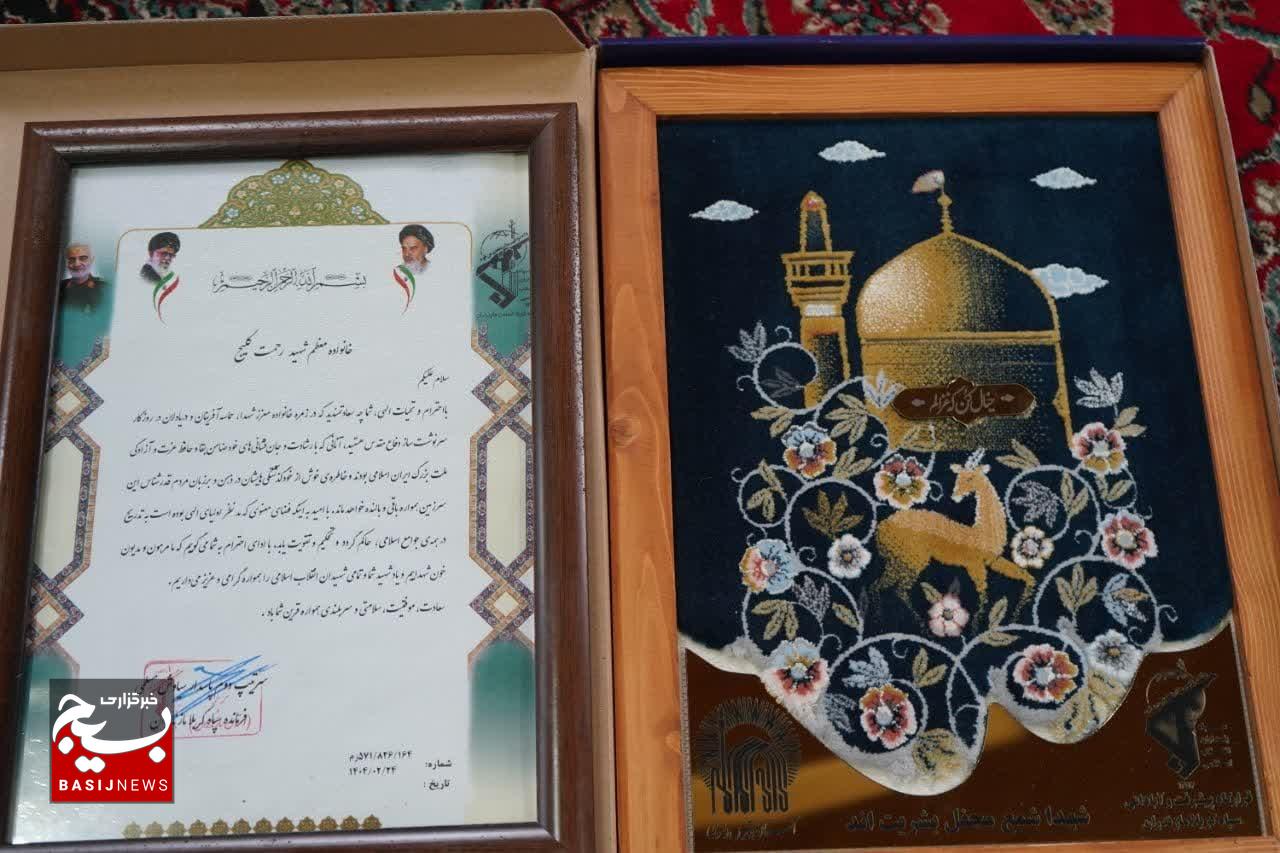 بسم الله الرحمن الرحیم
خانواده معظم شهید رحمت کلیج
سلام علیکم
با احترام و تحیات الهی، شما چه سعادتمندید که در زمره خانواده معزز شهدا، حماسه آفرینان و دریادلان در روزگار
سرنوشت ساز دفاع مقدس هستید، آنانی که با رشادت و جان‌فشانی های خود ضامن بقاء و حافظ عزت و آزادگی
ملت بزرگ ایران اسلامی بودند و خاطره‌ی خوش از خودگذشتگی‌هایشان در ذهن و بر زبان مردم قدرشناس این
سرزمین همواره باقی و بالنده خواهد ماند. با امید به اینکه فضای معنوی که مدنظر اولیای الهی بوده است به تدریج
در همه‌ی جوامع اسلامی، حاکم گردد و تحکیم و تقویت یابد.. با ادای احترام به شما می گوییم که ما مرهون و مدیون
خون شهداییم و یاد شهید شما و تمامی شهیدان انقلاب اسلامی را همواره گرامی و عزیز می‌داریم.
سعادت، موفقیت، سلامتی و سربلندی همواره قرین شما باد.
سرتیپ دوم پاسدار
فرمانده سپاه کربلا
شماره: ۵۷۱/۸۲۶/۱۶۴/رم
تاریخ: ۱۴۰۴/۰۲/۲۴
خبرگزاری
بسیج
BASIJNEWS
خیال کن که غزالم
شهدا شمع محفل بشریت اند
قرارگاه پیشرفت و آبادانی